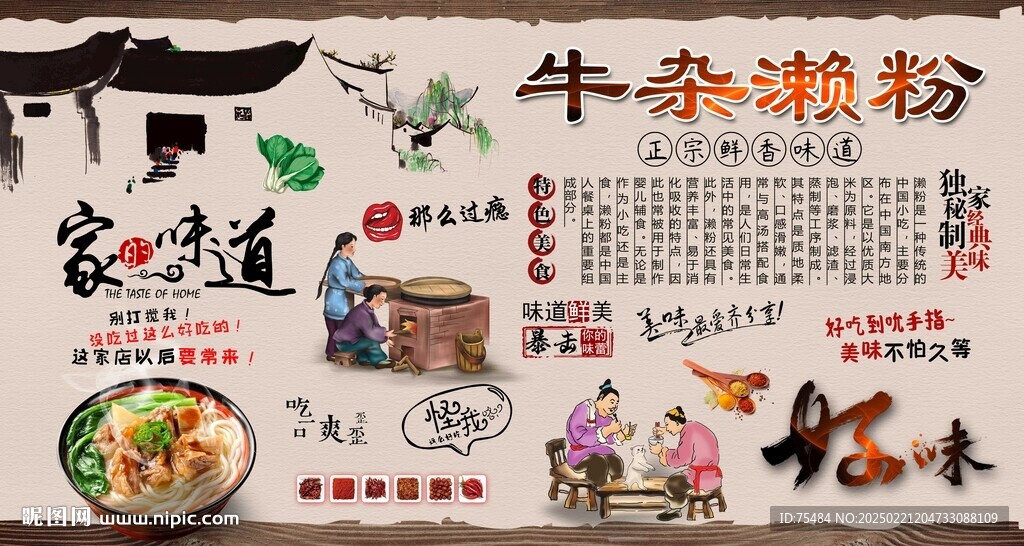 牛杂濑粉
正宗鲜香味道
特色美食
濑粉是一种传统的
中国小吃，主要分
布在中国南方地
区。它是以优质大
米为原料，经过浸
泡、磨浆、滤渣、
蒸制等工序制成。
其特点是质地柔
软、口感滑嫩，通
常与高汤搭配食
用，是人们日常生
活中的常见美食。
此外，濑粉还具有
营养丰富、易于消
化吸收的特点，因
此也常被用于制作
婴儿辅食。无论是
作为小吃还是主
食，濑粉都是中国
人餐桌上的重要组
成部分。
独家经典味
秘制美
家的味道
THE TASTE OF HOME
别打搅我！
没吃过这么好吃的！
这家店以后要常来！
那么过瘾
味道鲜美
暴击你的味蕾
美味最爱齐分享！
好吃到吮手指~
美味不怕久等
吃一口爽歪歪
怪我咯
好味
昵图网 www.nipic.com
ID:75484 NO:20250221204733088109